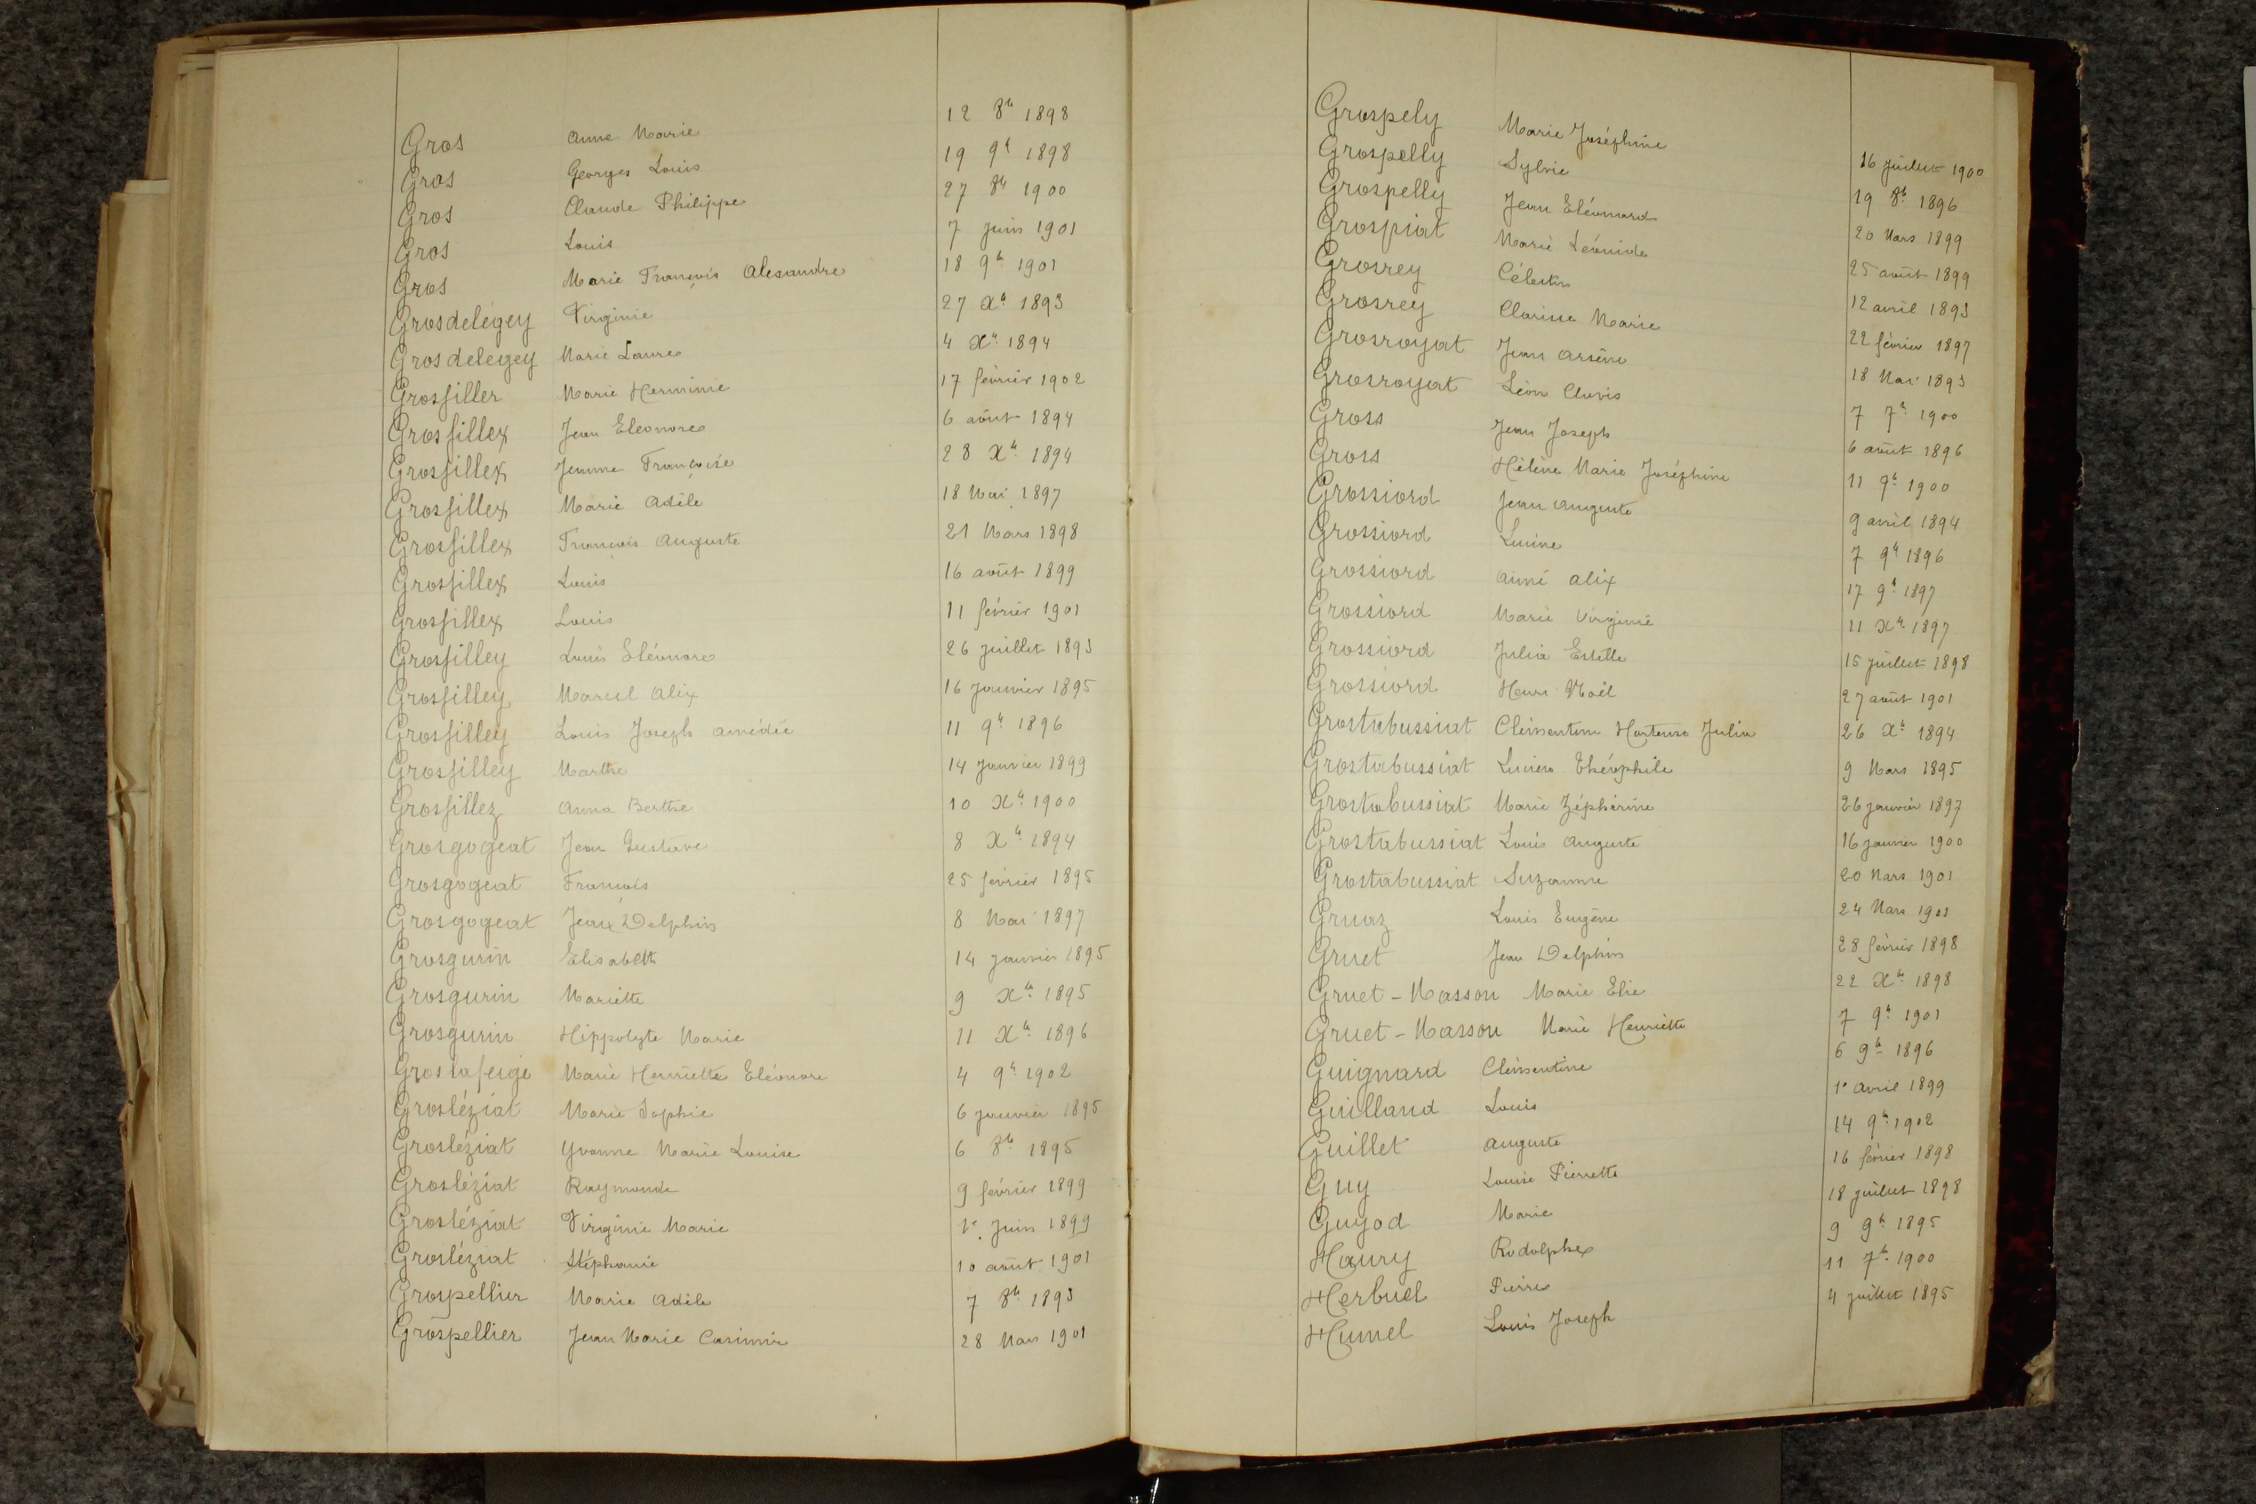 Gros Anne Marie 12 8bre 1898
Gros Georges Louis 19 9bre 1898
Gros Claude Philippe 27 8bre 1900
Gros Louis 7 juin 1901
Gros Marie François Alexandre 18 9bre 1901
Grosdelégey Virginie 27 Xbre 1893
Grosdelegey Marie Laure 4 Xbre 1894
Grosfiller Marie Herminie 17 février 1902
Grosfillex Jean Eléonore 6 août 1894
Grosfillex Jeanne Françoise 28 Xbre 1894
Grosfillex Marie Adèle 18 Mai 1897
Grosfillex François Auguste 21 Mars 1898
Grosfillex Louis 16 août 1899
Grosfillex Louis 11 février 1901
Grosfilley Louis Eléonore 26 juillet 1893
Grosfilley Marcel Alix 16 janvier 1895
Grosfilley Louis Joseph Amédée 11 9bre 1896
Grosfilley Marthe 14 janvier 1899
Grosfillez Anna Berthe 10 Xbre 1900
Grosgogeat Jean Gustave 8 Xbre 1894
Grosgogeat François 25 février 1895
Grosgogeat Jean Delphin 8 Mai 1897
Grosgurin Elisabeth 14 janvier 1895
Grosgurin Mariette 9 Xbre 1895
Grosgurin Hippolyte Marie 11 Xbre 1896
Groslafeige Marie Henriette Eléonore 4 9bre 1902
Grosléziat Marie Sophie 6 janvier 1895
Grosléziat Yvonne Marie Louise 6 8bre 1895
Grosléziat Raymonde 9 février 1899
Grosléziat Virginie Marie 1er Juin 1899
Grosléziat Stéphanie 10 août 1901
Grospellier Marie Adèle 7 8bre 1893
Grospellier Jean Marie Casimir 28 Mars 1901
Grospely Marie Joséphine 16 juillet 1900
Grospelly Sylvie 19 8bre 1896
Grospelly Jean Eléonard 20 Mars 1899
Grospiat Marie Léonide 25 août 1899
Grosrey Célestin 12 avril 1893
Grosrey Clarisse Marie 22 février 1897
Grosroyat Jean Arsène 18 Mai 1893
Grosroyat Léon Clovis 7 7bre 1900
Gross Jean Joseph 6 août 1896
Gross Hélène Marie Joséphine 11 9bre 1900
Grossiord Jean Auguste 9 avril 1894
Grossiord Lucine 7 9bre 1896
Grossiord Aimé Alix 17 9bre 1897
Grossiord Marie Virginie 11 Xbre 1897
Grossiord Julia Estelle 15 juillet 1898
Grossiord Henri Noël 27 août 1901
Grostabussiat Clémentine Hortense Julia 26 Xbre 1894
Grostabussiat Lucien Théophile 9 Mars 1895
Grostabussiat Marie Zéphirine 26 janvier 1897
Grostabussiat Louis Auguste 16 janvier 1900
Grostabussiat Suzanne 20 Mars 1901
Gruaz Louis Eugène 24 Mars
Gruet Jean Delphin 28 février 1898
Gruet-Masson Marie Elie 22 Xbre 1898
Gruet-Masson Marie Henriette 7 9bre 1901
Guignard Clémentine 6 9bre 1896
Guilland Louis 1er avril 1899
Guillet Auguste 14 9bre 1902
Guy Louise Pierrette 16 février 1898
Guyod Marie 18 juillet 1898
Haury Rodolphe 9 9bre 1895
Herbuel Pierre 11 7bre 1900
Humel Louis Joseph 4 juillet 1895